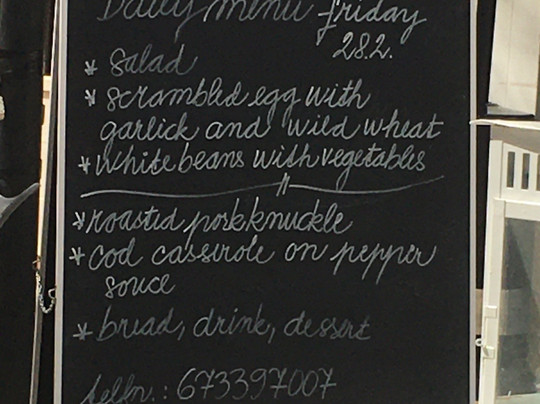 Daily menu friday
28.2.
* Salad
* scrambled egg with
garlick and wild wheat
* white beans with vegetables
* roasted porkknuckle
* cod casserole on pepper
souce
* bread, drink, dessert
telfn.: 673397007